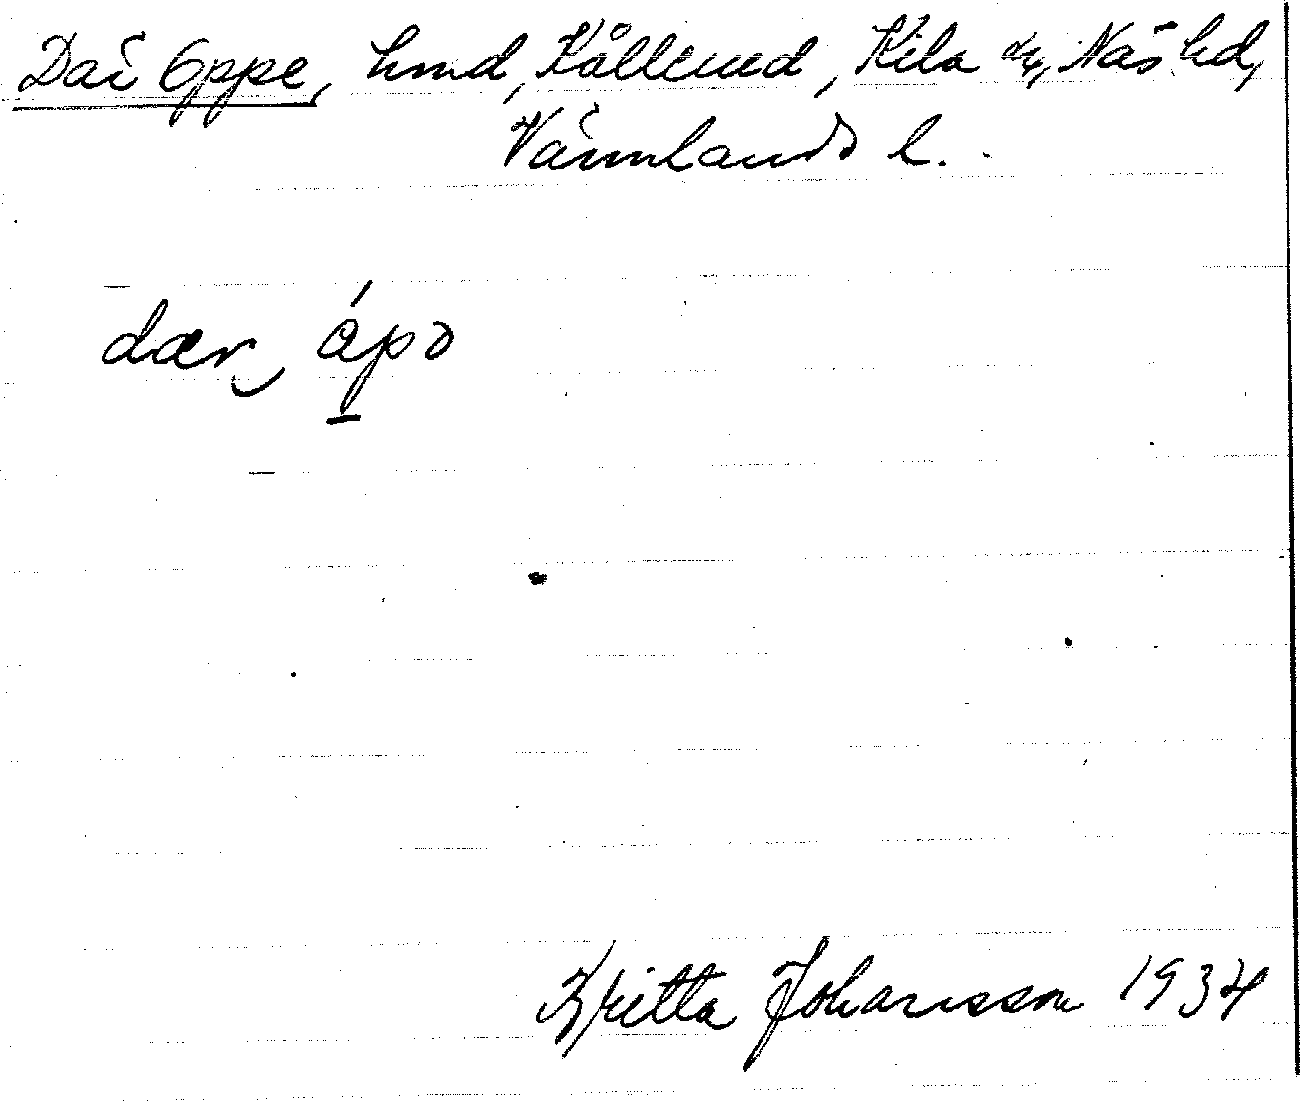 Där Oppe, hmd, Kållerud, Kila sn, Näs hd,
Värmlands l.
dær ápɔ
Britta Johansson 1934